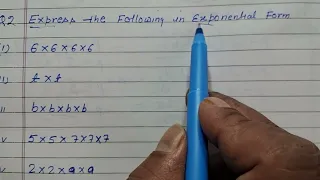 Q2 Express the Following in Exponential Form
(i) 6×6×6×6
ii) t×t
ii b×b×b×b
v 5×5×7×7×7
v. 2×2×a×a